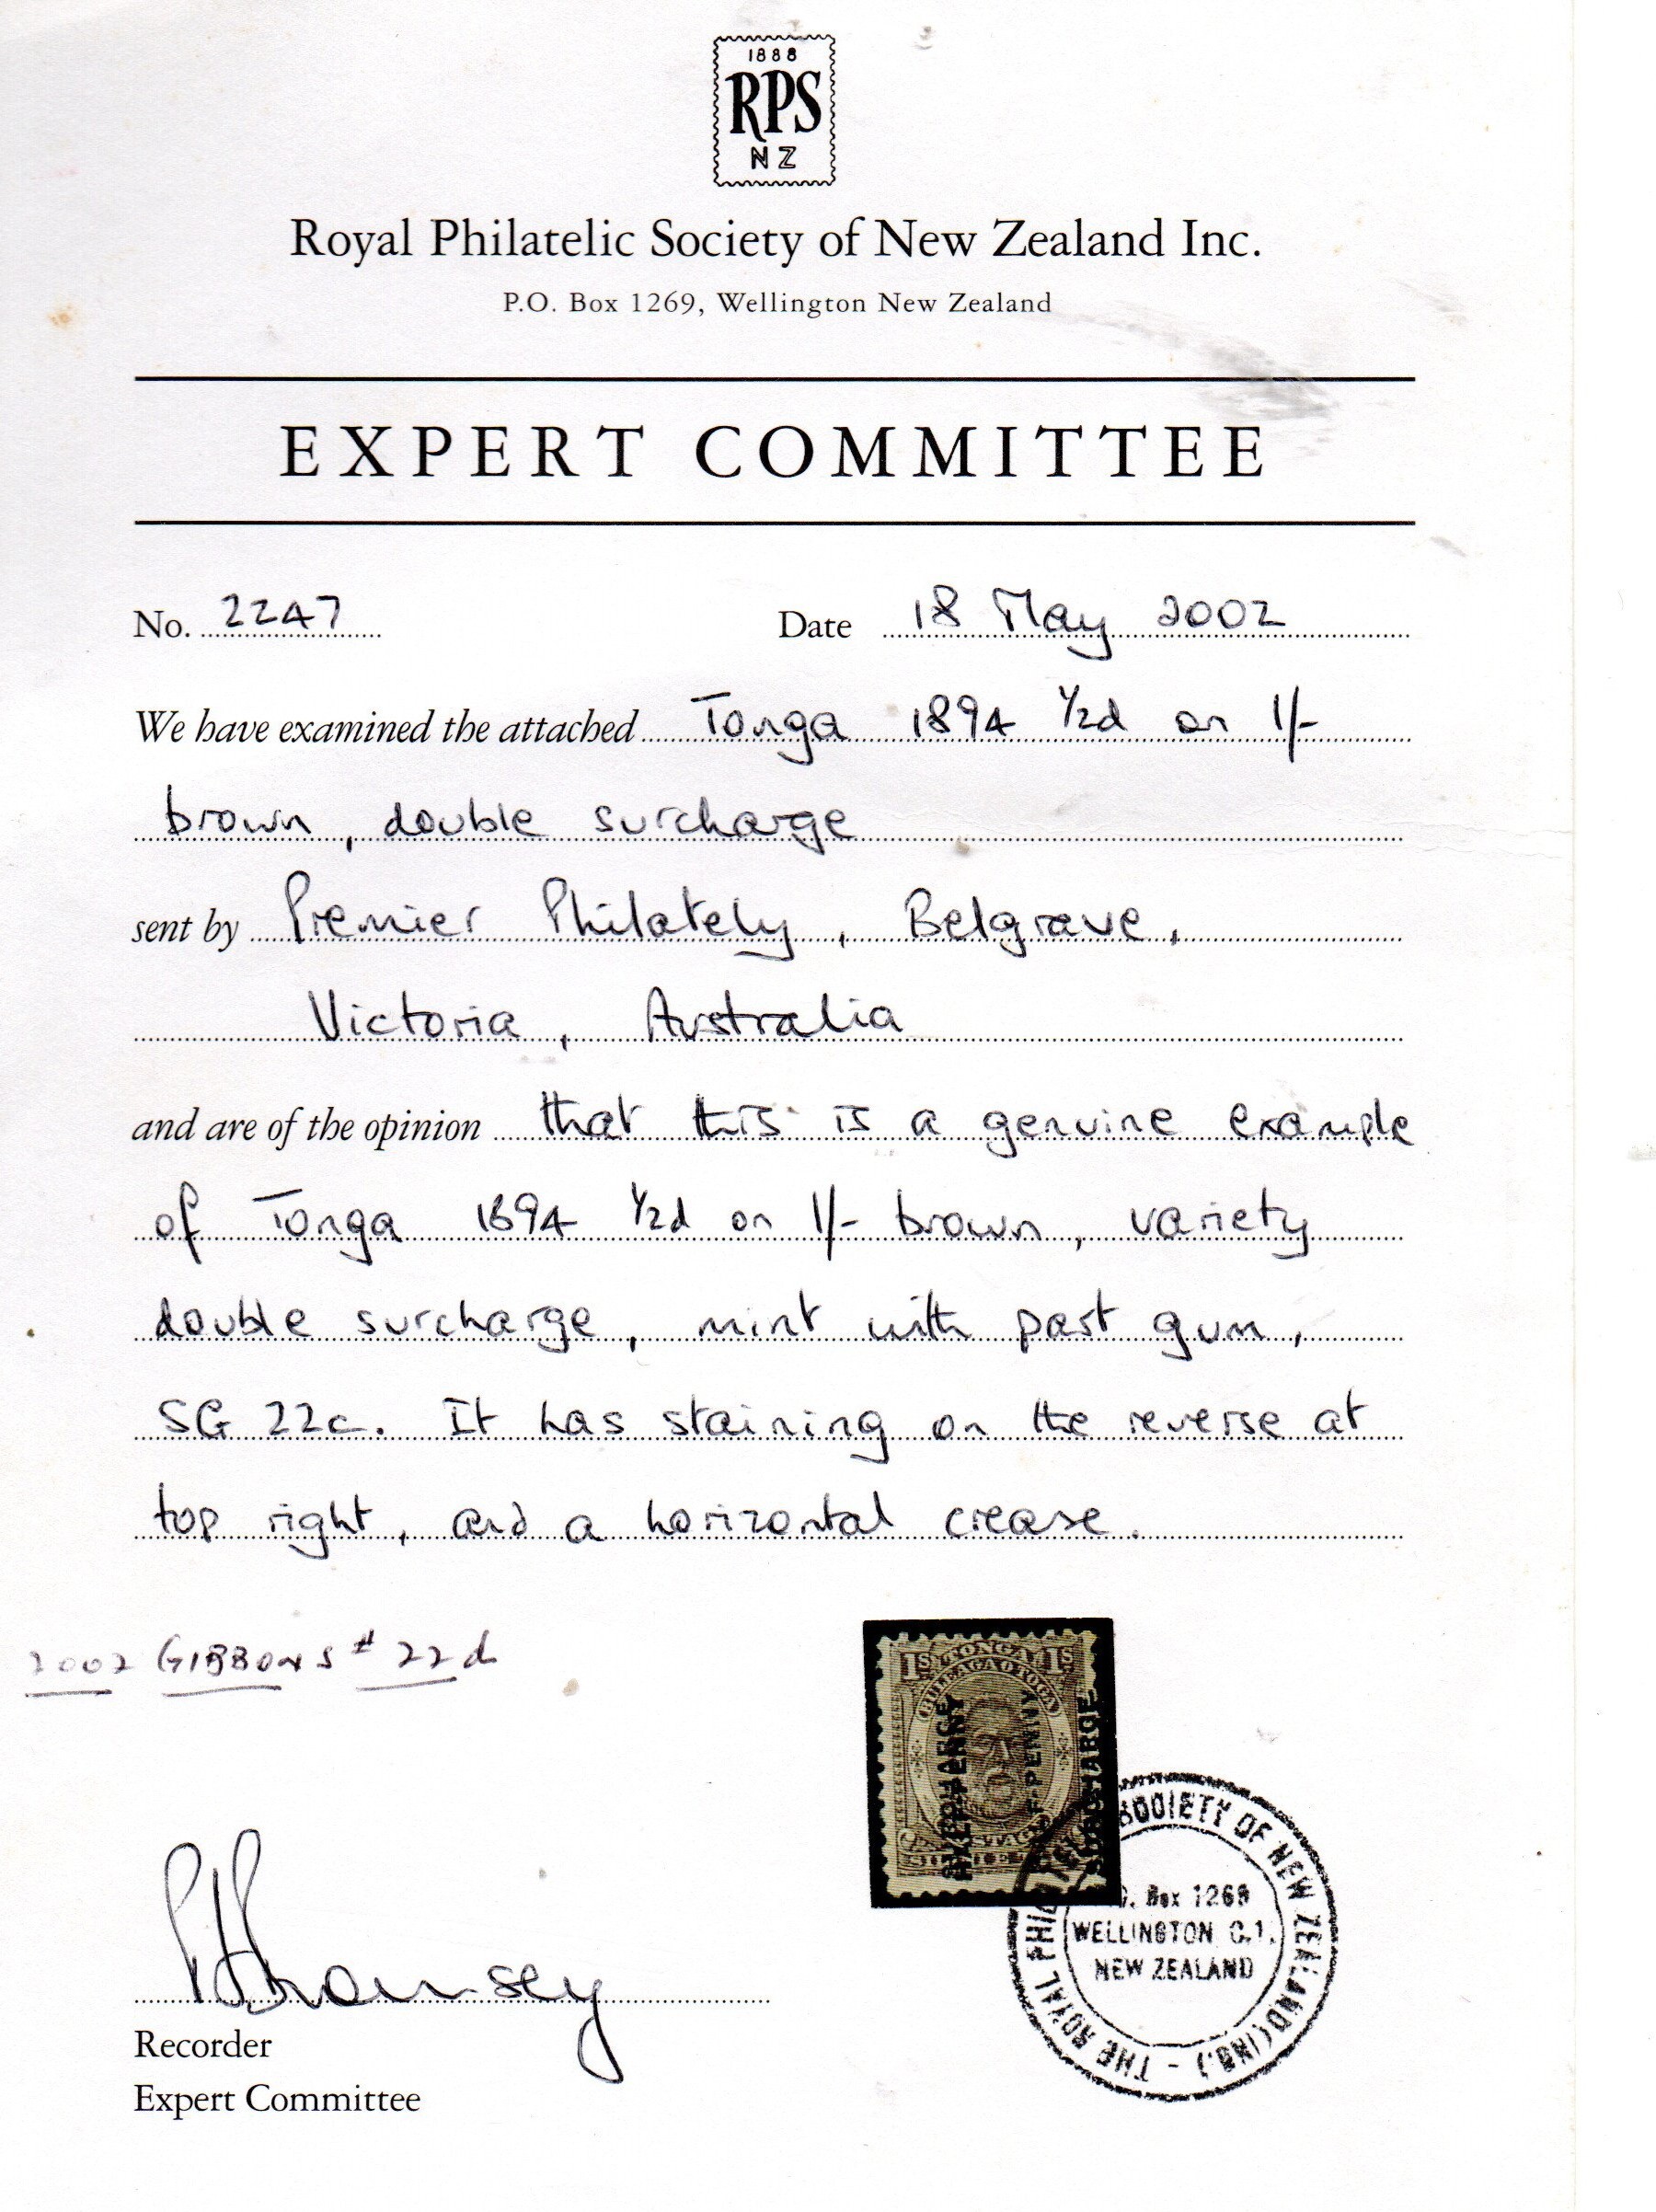 1888
RPS
NZ
Royal Philatelic Society of New Zealand Inc.
P.O. Box 1269, Wellington New Zealand
EXPERT COMMITTEE
No. 2247 Date 18 May 2002
We have examined the attached Tonga 1894 ½d on 1/-
brown, double surcharge
sent by Premier Philately, Belgrave,
Victoria, Australia
and are of the opinion that this is a genuine example
of Tonga 1894 ½d on 1/- brown, variety
double surcharge, mint with part gum,
SG 22c. It has staining on the reverse at
top right, and a horizontal crease.
2002 GIBBONS # 22d
1S TONGA 1S
SURCHARGE
HALF-PENNY
F-PENNY
SURCHARGE
Recorder
Expert Committee
THE ROYAL PHIL SOCIETY OF NEW ZEALAND (INC.) -
Box 1269
WELLINGTON, C.1.
NEW ZEALAND